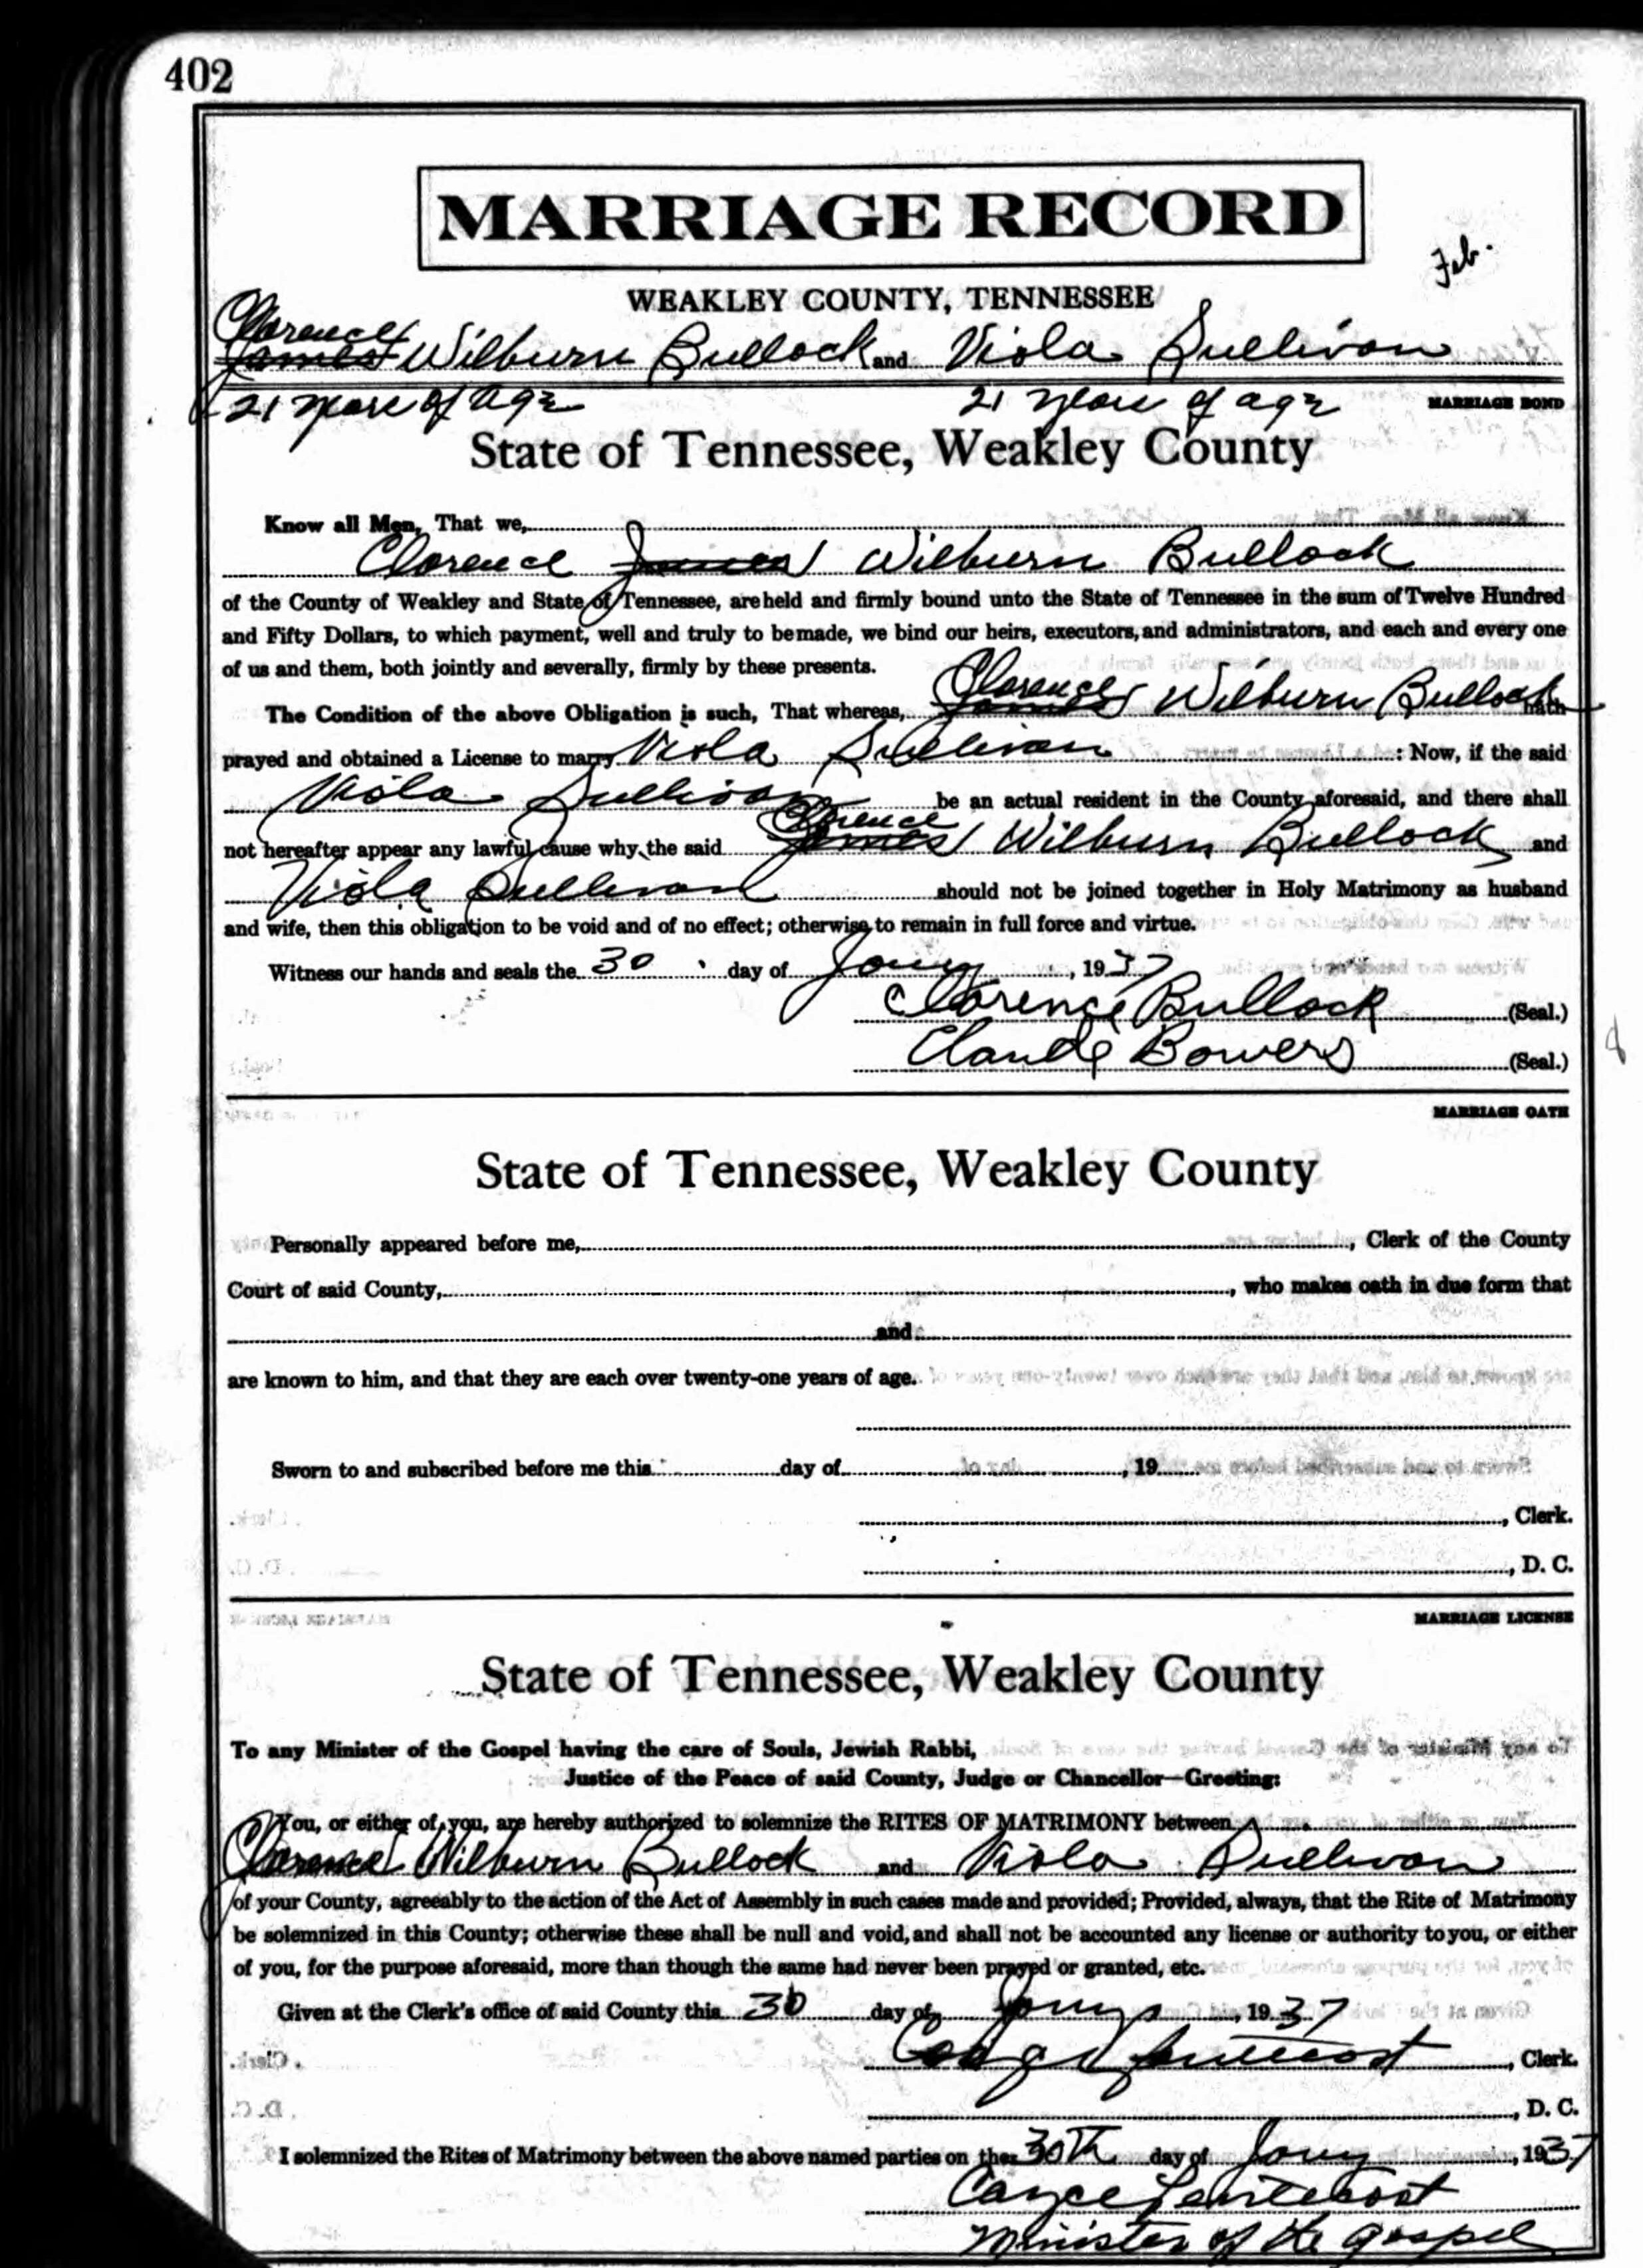 402
MARRIAGE RECORD
Feb.
WEAKLEY COUNTY, TENNESSEE
Clarence
James Wilburn Bullock and Viola Sullivan
21 years of age 21 years of age MARRIAGE BOND
State of Tennessee, Weakley County
Know all Men, That we,
Clarence James Wilburn Bullock
of the County of Weakley and State of Tennessee, are held and firmly bound unto the State of Tennessee in the sum of Twelve Hundred
and Fifty Dollars, to which payment, well and truly to be made, we bind our heirs, executors, and administrators, and each and every one
of us and them, both jointly and severally, firmly by these presents.
Clarence
The Condition of the above Obligation is such, That whereas, James Wilburn Bullock hath
prayed and obtained a License to marry Viola Sullivan : Now, if the said
Viola Sullivan be an actual resident in the County aforesaid, and there shall
Clarence
not hereafter appear any lawful cause why the said James Wilburn Bullock and
Viola Sullivan should not be joined together in Holy Matrimony as husband
and wife, then this obligation to be void and of no effect; otherwise to remain in full force and virtue.
Witness our hands and seals the 30 day of Jany, 1937
Clarence Bullock (Seal.)
Claude Bowers (Seal.)
MARRIAGE OATH
State of Tennessee, Weakley County
Personally appeared before me, , Clerk of the County
Court of said County, , who makes oath in due form that
and
are known to him, and that they are each over twenty-one years of age.
Sworn to and subscribed before me this day of , 19
, Clerk.
, D. C.
MARRIAGE LICENSE
State of Tennessee, Weakley County
To any Minister of the Gospel having the care of Souls, Jewish Rabbi,
Justice of the Peace of said County, Judge or Chancellor—Greeting:
You, or either of you, are hereby authorized to solemnize the RITES OF MATRIMONY between
Clarence Wilburn Bullock and Viola Sullivan
of your County, agreeably to the action of the Act of Assembly in such cases made and provided; Provided, always, that the Rite of Matrimony
be solemnized in this County; otherwise these shall be null and void, and shall not be accounted any license or authority to you, or either
of you, for the purpose aforesaid, more than though the same had never been prayed or granted, etc.
Given at the Clerk's office of said County this 30 day of Jany, 1937
Pentecost, Clerk.
, D. C.
I solemnized the Rites of Matrimony between the above named parties on the 30th day of Jany, 1937
Cayce Pentecost
Minister of the Gospel